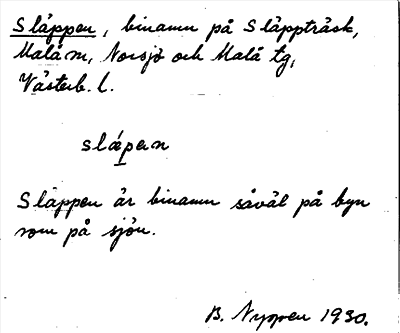 Släppen, binamn på Släppträsk,
Malå sn, Norsjö och Malå tg,
Västerb. l.
slä́pen
Släppen är binamn såväl på byn
som på sjön.
B. Nyppen 1930.